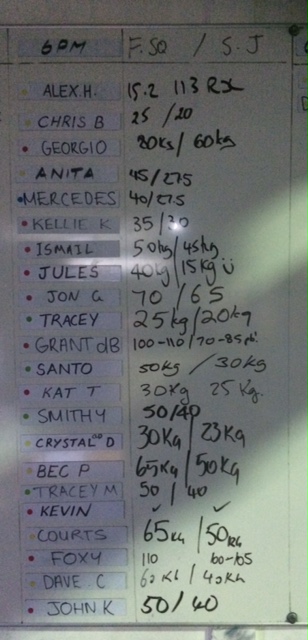 6PM F.SQ / S.J
ALEX.H. 15.2 113 Rx
CHRIS B 25 / 20
GEORGIO 80kg / 60kg
ANITA 45/27.5
MERCEDES 40/27.5
KELLIE K 35/30
ISMAIL 50kg/45kg
JULES 40kg/15kg ü
JON G 70 / 65
TRACEY 25kg/20kg
GRANT dB 100-110/70-85
SANTO 50kg / 30kg
KAT T 30kg 25 Kg.
SMITHY 50/40
CRYSTAL D 30Kg / 23Kg
BEC P 65Kg / 50Kg
TRACEY M 50 / 40
KEVIN ✓ ✓
COURTS 65Kg / 50Kg
FOXY 110
DAVE C 60Kg / 40Kg
JOHN K 50/40